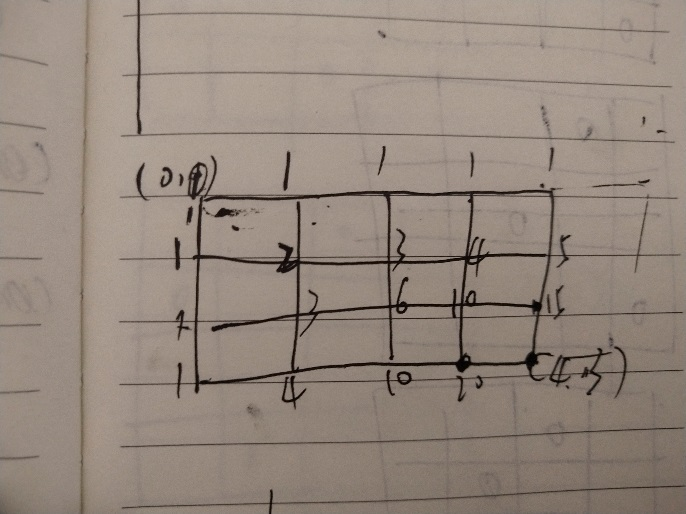 (0,0) 1 1 1 1
1 2 3 4 5
1 3 6 10 15
1 4 10 20 (4,3)